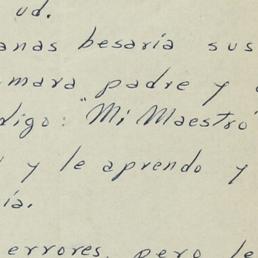 ud.
anas besaría sus
mara padre y
digo: "Mi Maestro"
y le aprendo y
ía.
errores, pero le